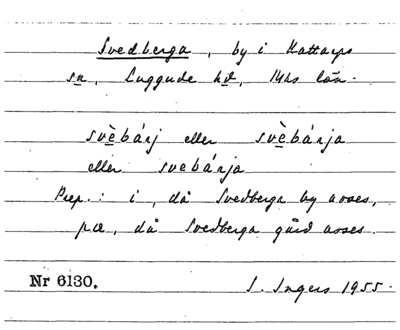 Svedberga, by i Kattarps
sn, Luggude hd, Mhs län.
svèbárj eller svèbárja
eller svebárja
Prep.: i, då Svedberga by avses,
pæ, då Svedberga gård avses.
Nr 6130.
I. Ingers 1955.